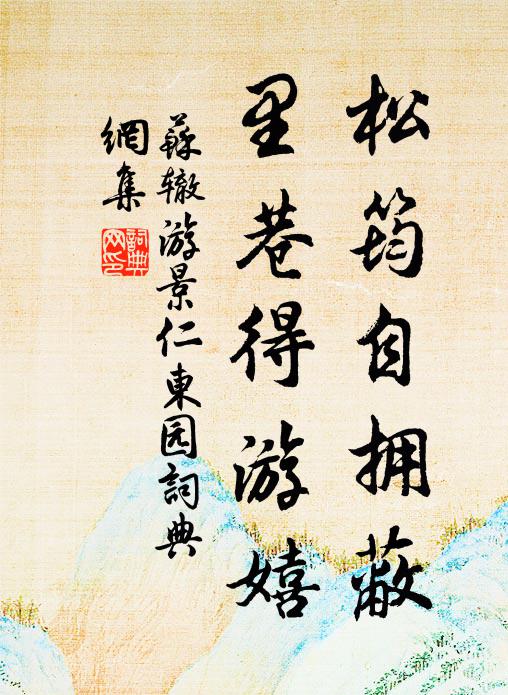 松筠自拥蔽
里巷得游嬉
蘇辙游景仁東园詞典
網集
詞典
网印